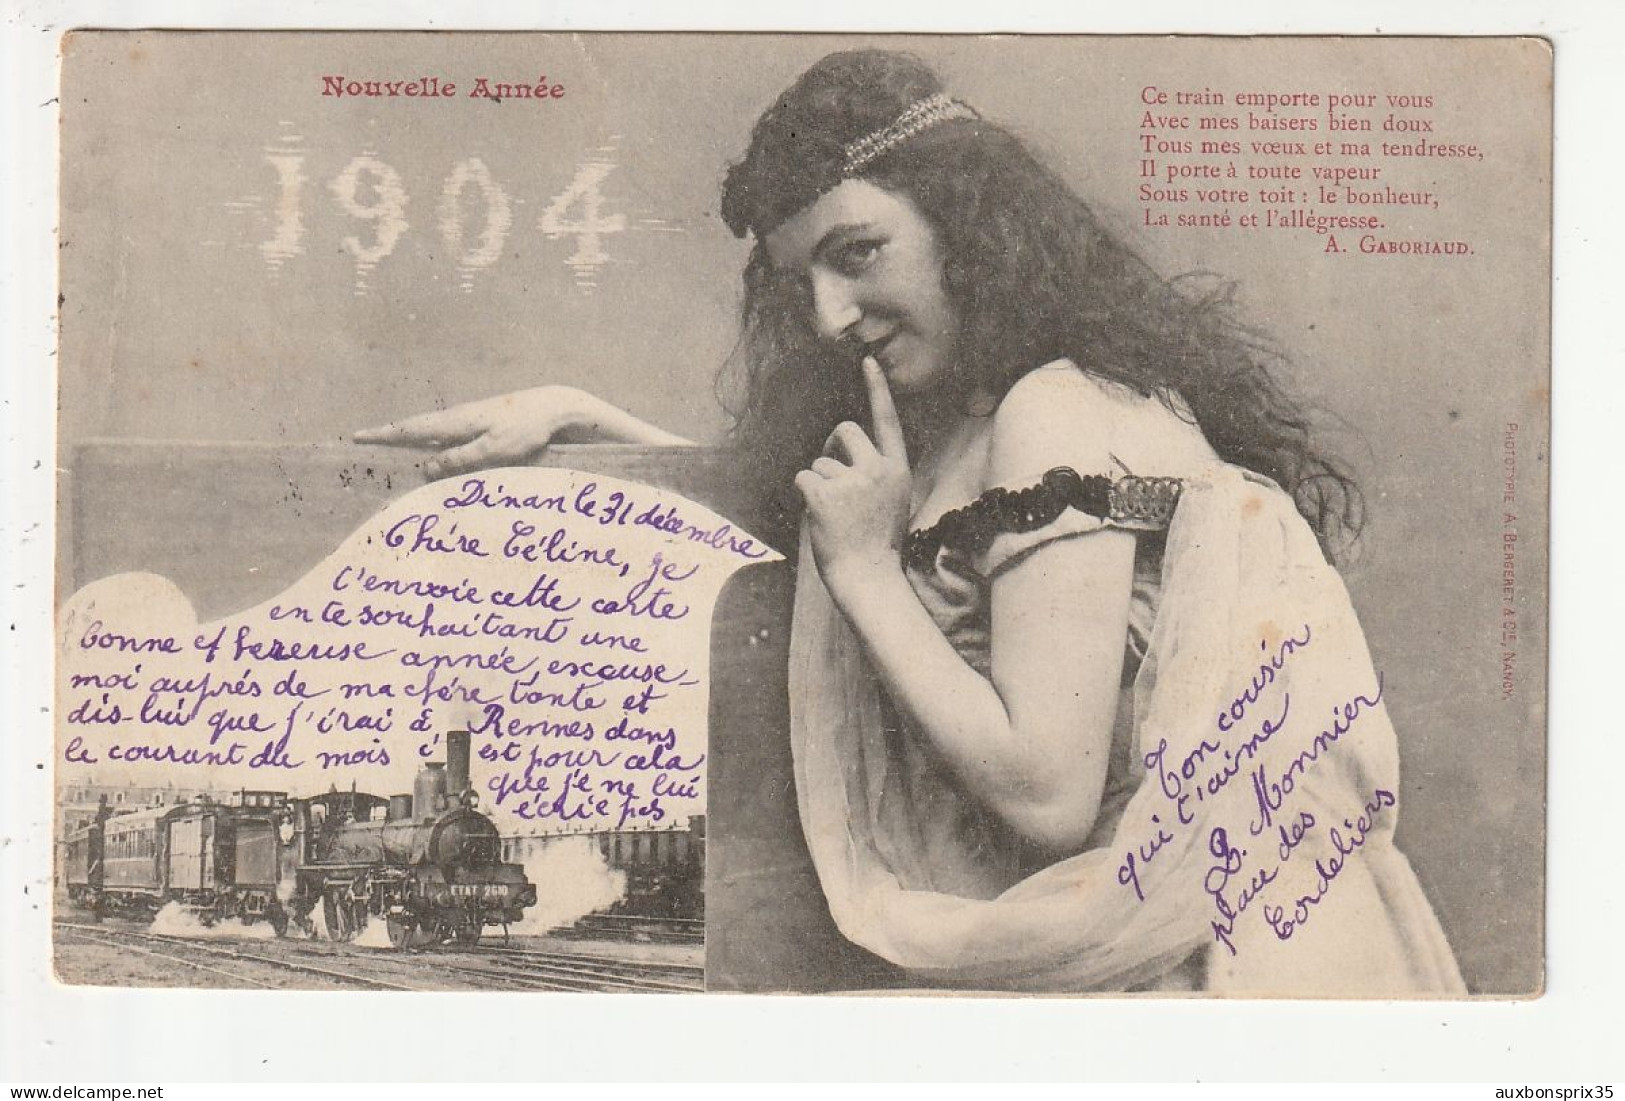 Nouvelle Année
1904
Ce train emporte pour vous
Avec mes baisers bien doux
Tous mes vœux et ma tendresse,
Il porte à toute vapeur
Sous votre toit : le bonheur,
La santé et l'allégresse.
A. GABORIAUD.
Dinan le 31 décembre
Chère Céline, je
t'envoie cette carte
en te souhaitant une
bonne et heureuse année, excuse-
moi auprés de ma chére tante et
dis-lui que j'irai à Rennes dans
le courant du mois c'est pour cela
que je ne lui
écrie pas
Ton cousin
qui t'aime
P. Monnier
place des
Cordeliers
ETAT 2610
PHOTOTYPIE A. BERGERET & Cie, NANCY.
auxbonsprix35